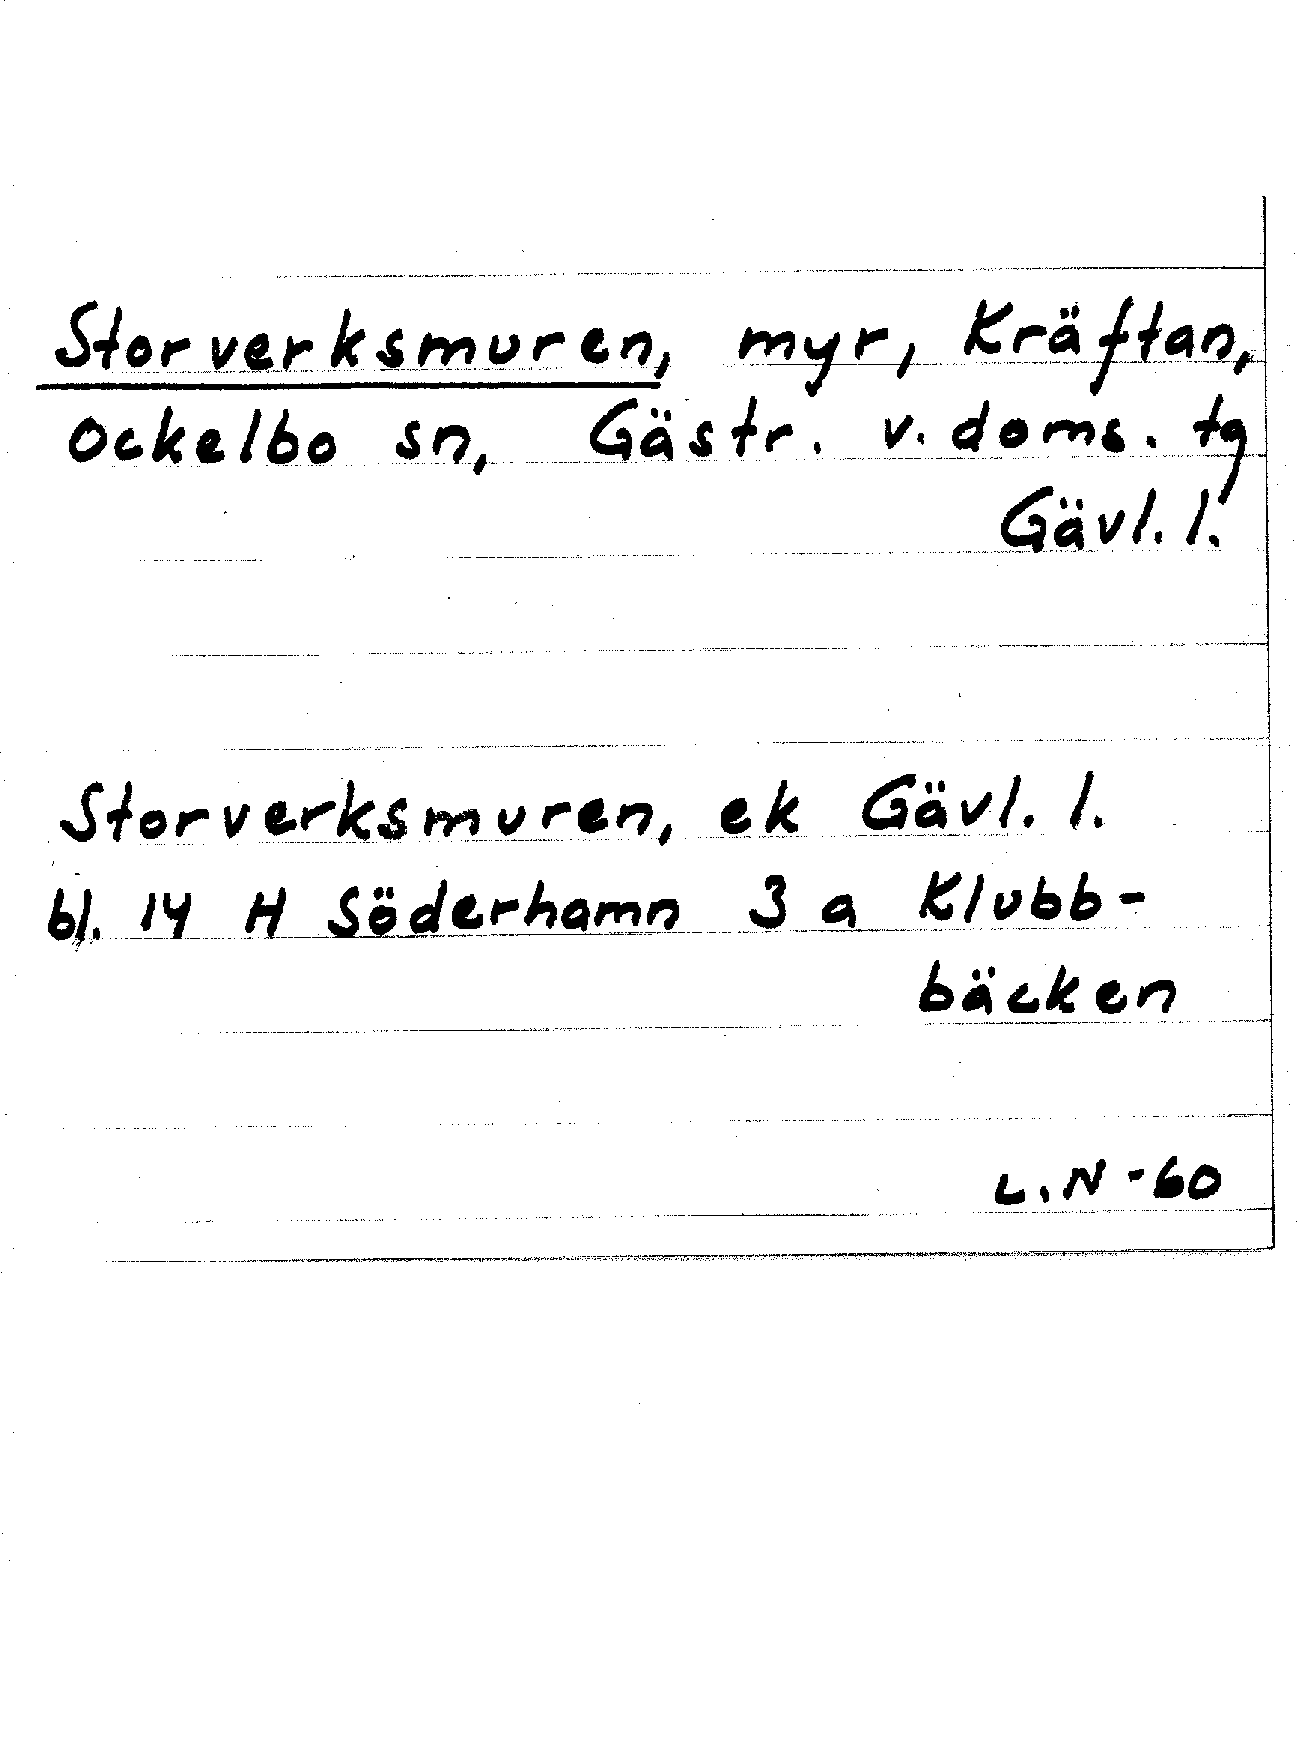 Storverksmuren, myr, Kräftan,
Ockelbo sn, Gästr. v. doms. tg
Gävl. l.
Storverksmuren, ek Gävl. l.
bl. 14 H Söderhamn 3 a Klubb-
bäcken
L.N -60